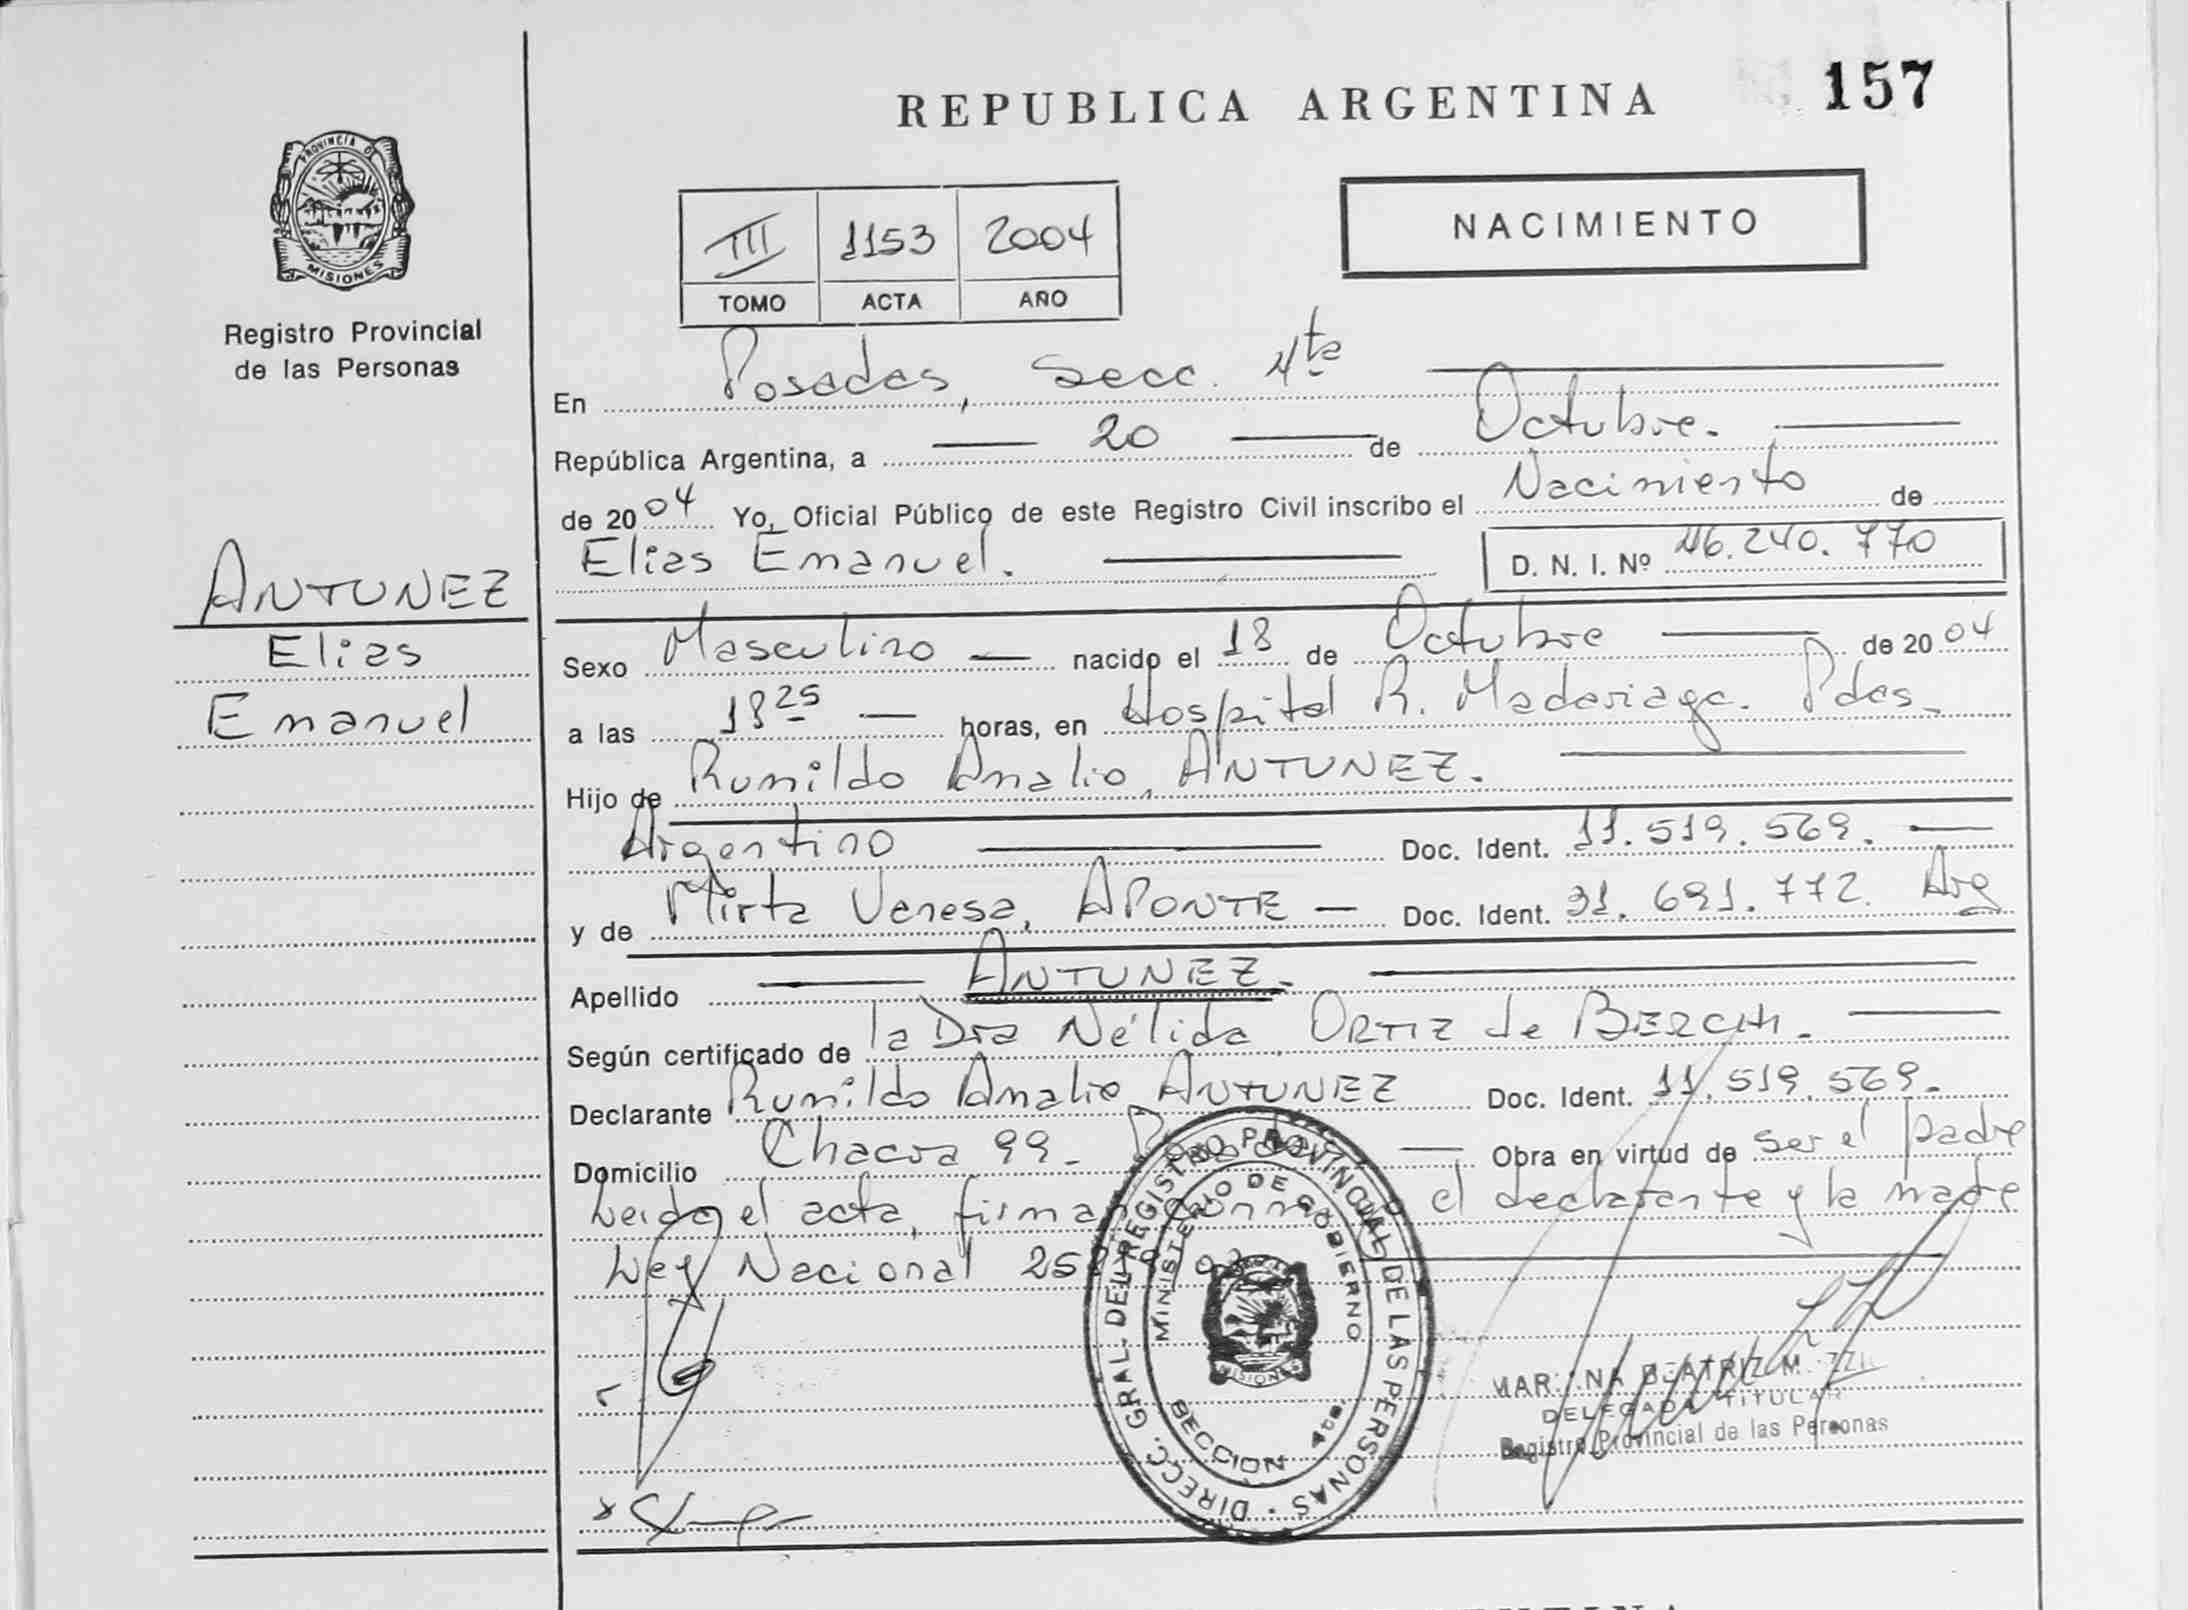 REPUBLICA ARGENTINA
157
PROVINCIA D
MISIONES
Registro Provincial
de las Personas
III 1153 2004
TOMO ACTA AÑO
NACIMIENTO
En Posadas, Secc. 4ta
República Argentina, a 20 de Octubre.
de 2004 Yo, Oficial Público de este Registro Civil inscribo el Nacimiento de
Elias Emanuel.
D. N. I. Nº 46.240.770
ANTUNEZ
Elias
Emanuel
Sexo Masculino nacido el 18 de Octubre de 2004
a las 18 25 horas, en Hospital R. Madariaga. Pdas.
Hijo de Rumildo Amalio, ANTUNEZ.
Argentino Doc. Ident. 11.519.569.
y de Mirta Vanesa, APONTE Doc. Ident. 31.691.772. Arg
Apellido ANTUNEZ.
Según certificado de la Dra Nélida ORTIZ de
Declarante Rumildo Amalio ANTUNEZ Doc. Ident. 11.519.569.
Domicilio Chacra 99 - Obra en virtud de ser el padre
Leida el acta, firman el declarante y la madre
Ley Nacional
DIRECC. GRAL. DEL REGISTRO PROVINCIAL DE LAS PERSONAS
MINISTERIO DE GOBIERNO
MISIONES
SECCION 4ta
BEATRIZ
DELEGADA TITULAR
Registro Provincial de las Personas